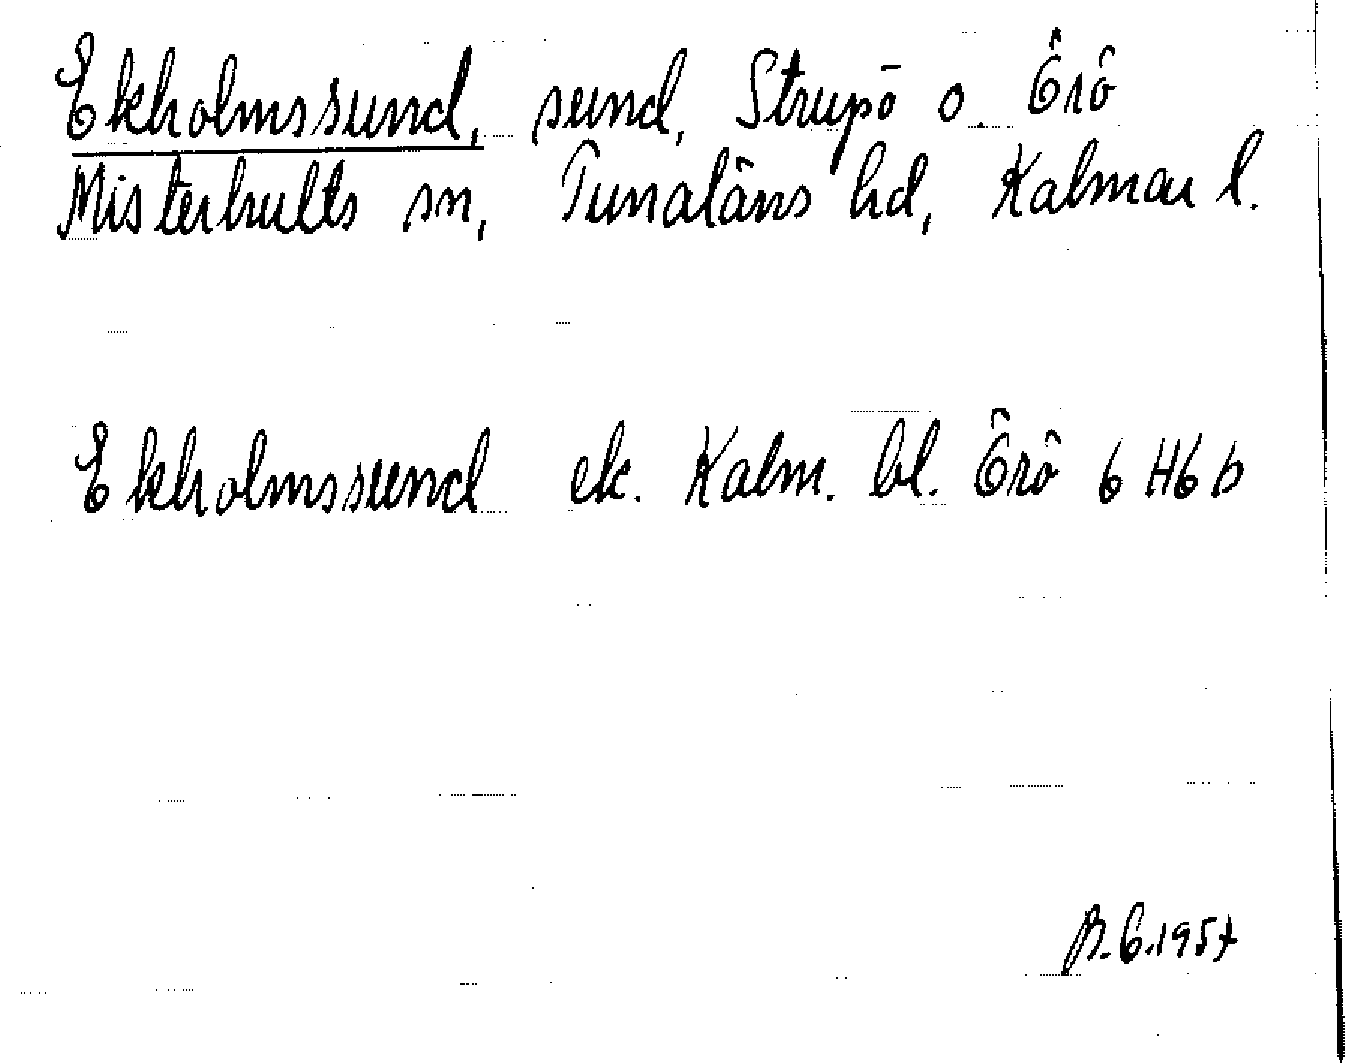 Ekholmssund, sund, Strupö o. Örö
Misterhults sn, Tunaläns hd, Kalmar l.
Ekholmssund ek. Kalm. bl. Örö 6 H6 b
B.G.1957